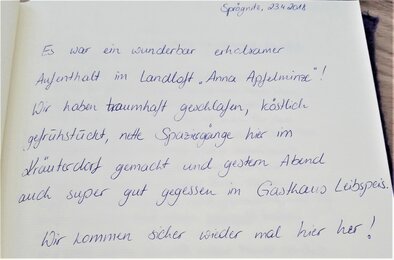 Sprögnitz, 23.4.2018
Es war ein wunderbar erholsamer
Aufenthalt im Landloft "Anna Apfelminze"!
Wir haben traumhaft geschlafen, köstlich
gefrühstückt, nette Spaziergänge hier im
Kräuterdorf gemacht und gestern Abend
auch super gut gegessen im Gasthaus Leibspeis.
Wir kommen sicher wieder mal hier her!